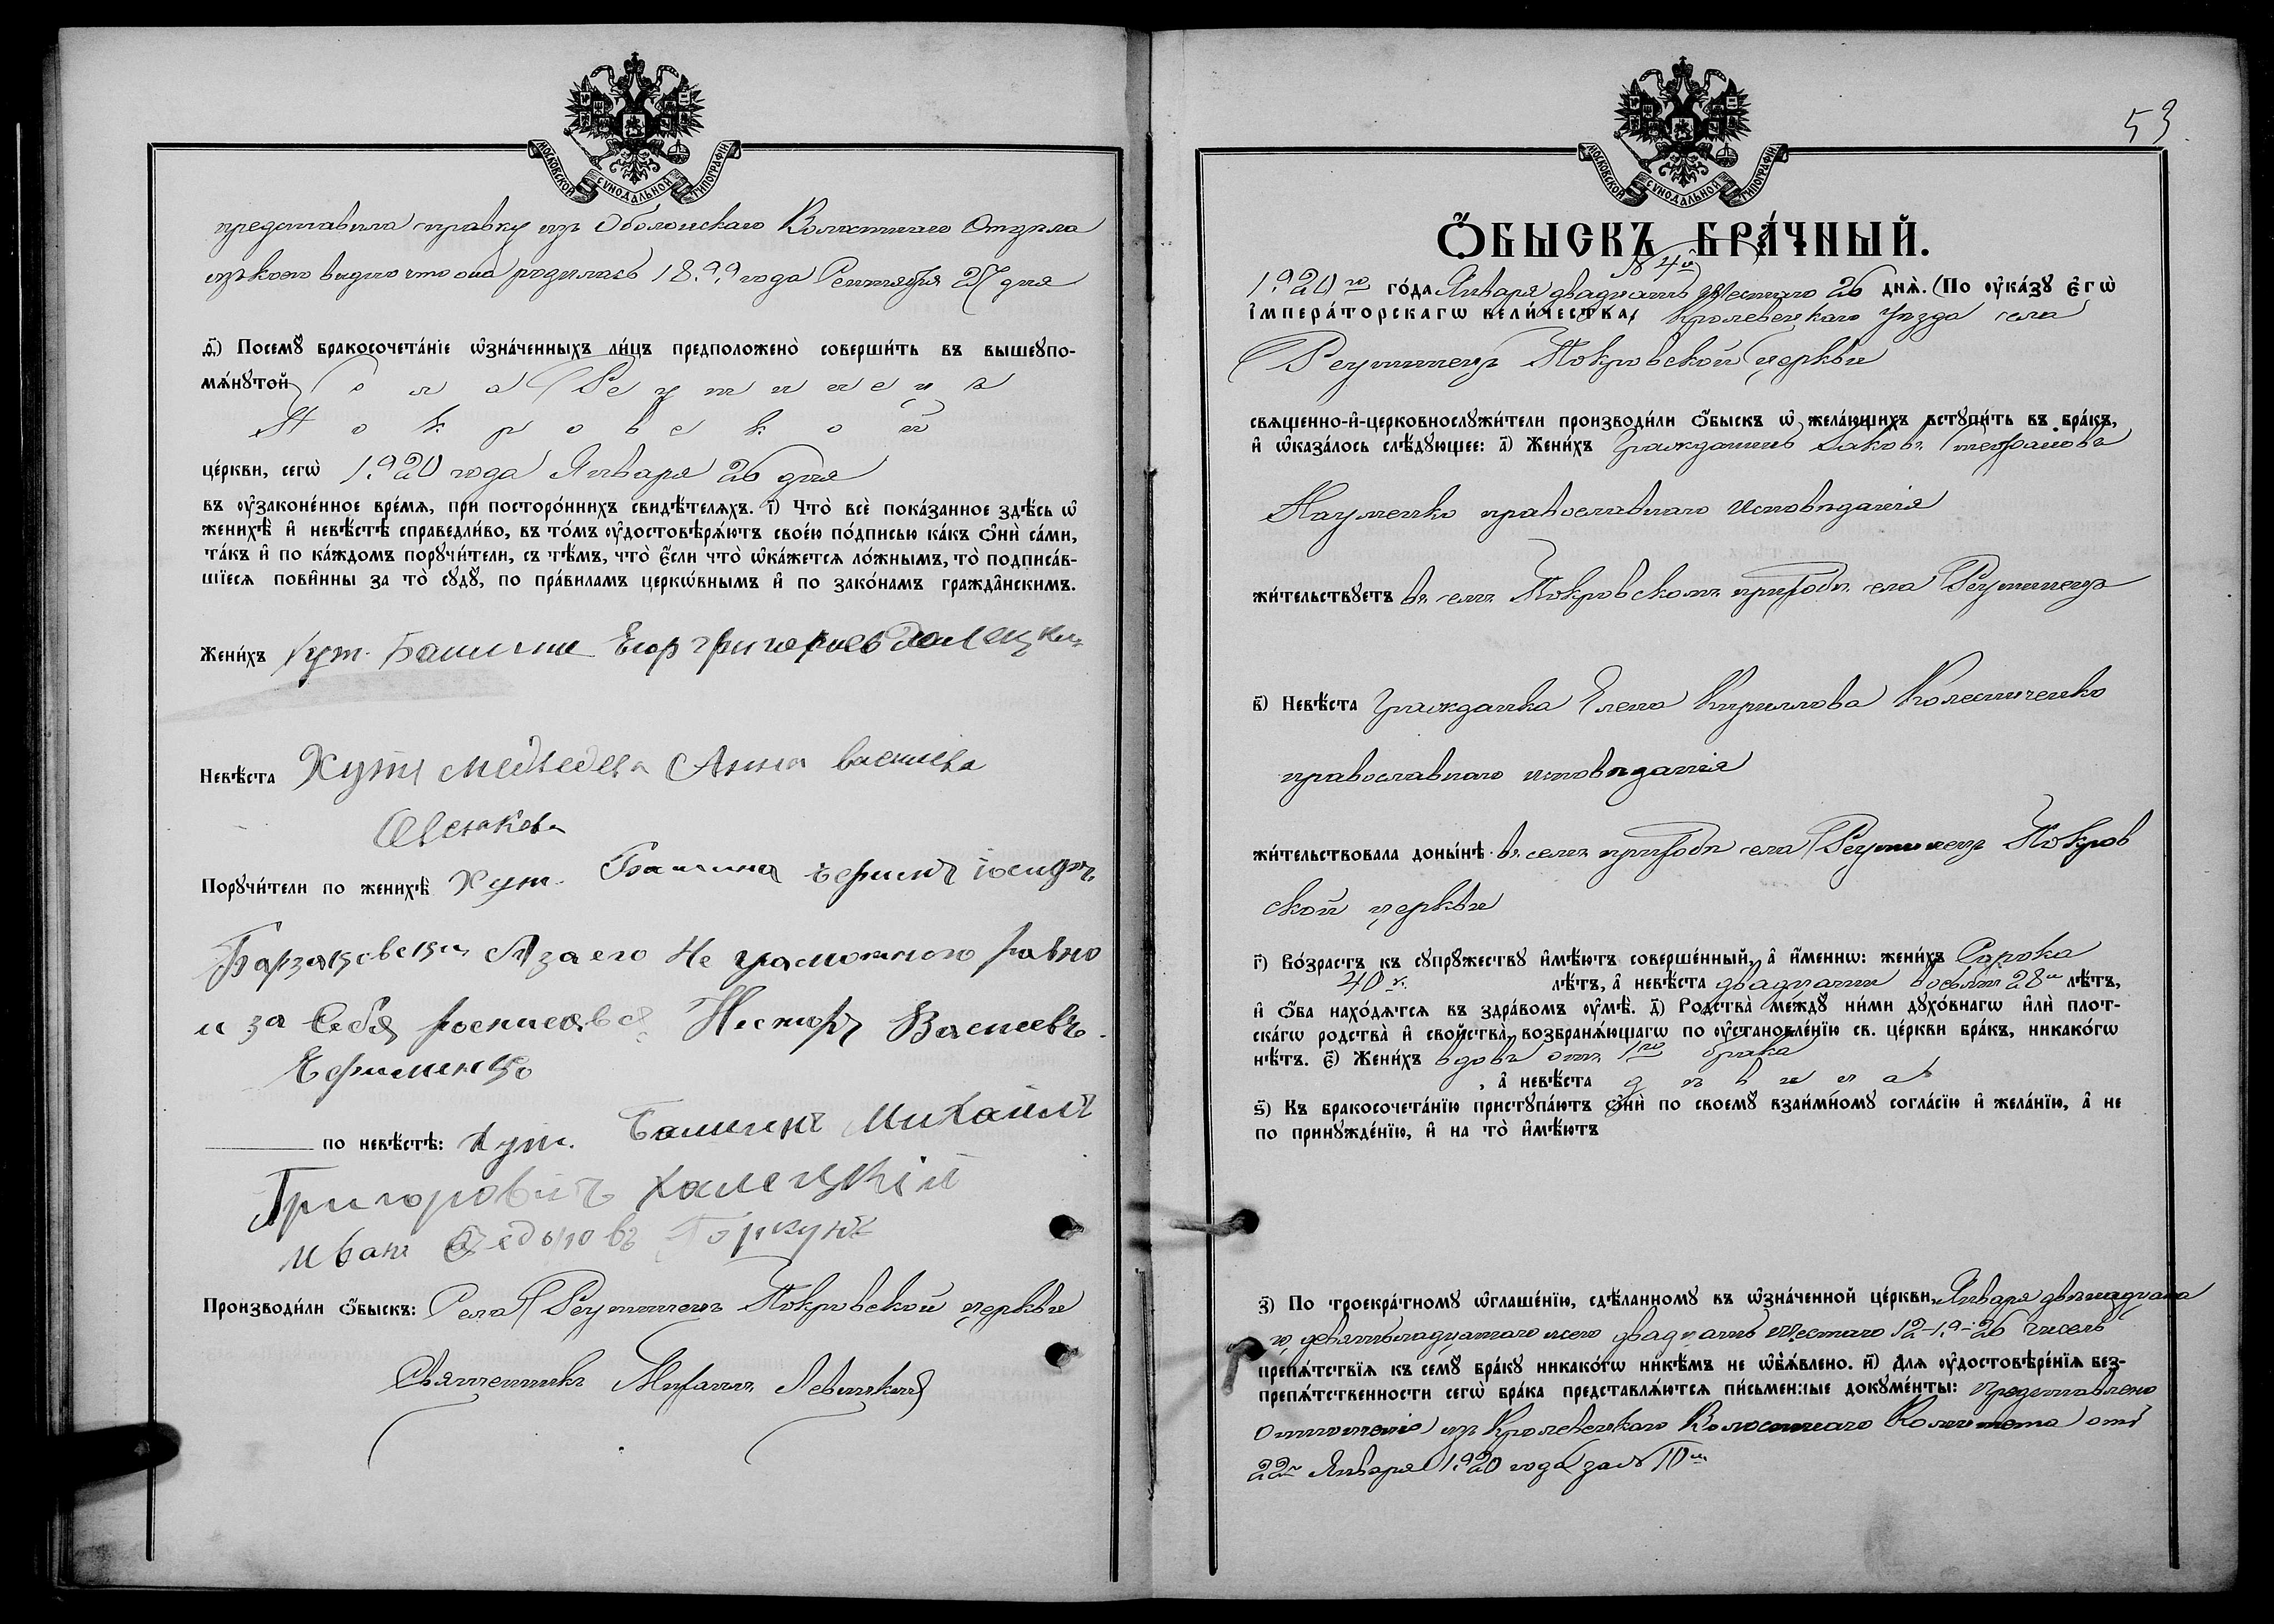 МОСКОВСКОЙ СѴНОДАЛЬНОЙ ТИПОГРАФІИ
представила справку изъ Оболонскаго Волостного Отдѣла
изъ коего видно что она родилась 1899 года Сентября 27 дня
д҃) Посемꙋ бракосочета́нїе ѡ҆зна́ченныхъ ли́цъ предположено̀ соверши́ть въ вышеꙋпо-
мѧ́нꙋтой села Реутинецъ
Покровской
це́ркви, сегѡ̀ 1920 года Января 26 дня
въ ᲂу҆законе́нное вре́мѧ, при посторо́ннихъ свидѣ́телѧхъ. і҃) Что̀ всѐ пока́занное здѣ́сь ѡ҆
женихѣ̀ и҆ невѣ́стѣ справедли́во, въ то́мъ ᲂу҆достовѣрѧ́ютъ свое́ю по́дписью ка́къ ѻ҆нѝ са́ми,
та́къ и҆ по ка́ждомъ порꙋчи́тели, съ тѣ́мъ, что̀ є҆́сли что̀ ѡ҆ка́жетсѧ ло́жнымъ, то̀ подписа́в-
шїесѧ пови́нны за то̀ сꙋдꙋ̀, по пра́виламъ церкѡ́внымъ и҆ по зако́намъ гражда̑нскимъ.
Жени́хъ Хут. Башина Егор Григориев
Невѣ́ста Хутя Медведева Анна
Порꙋчи́тели по женихѣ̀ Хут. Башина Ефимъ Іосифъ
А за его не грамотного равно
и за себя росписався Несторъ Васиевъ
Ефименко
по невѣ́стѣ: Хут. Башинъ Михаилъ
Григоровичъ Халецкій
Иванъ Федоровъ Горкунъ
Производи́ли ѻ҆́быскъ: Села Реутинецъ Покровской церкви
Священникъ Михаилъ Левицкий
53
МОСКОВСКОЙ СѴНОДАЛЬНОЙ ТИПОГРАФІИ
Ѻ҆́БЫСКЪ БРА́ЧНЫЙ.
№ 4й
1920го го́да Января двадцать шестаго 26 днѧ̀. (По ᲂу҆ка́зꙋ є҆гѡ̀
і҆мпера́торскагѡ вели́чества, Кролевецкаго уѣзда села
Реутинецъ Покровской церкви
свѧщенно-и҆-церковнослꙋжи́тели производи́ли ѻ҆́быскъ ѡ҆ жела́ющихъ встꙋпи́ть въ бра́къ,
и҆ ѡ҆каза́лось слѣ́дꙋющее: а҃) Жени́хъ Гражданинъ Іаковъ Стефановъ
Науменко православнаго исповѣданія
жи́тельствꙋетъ въ семъ Покровскомъ приходѣ села Реутинецъ
в҃) Невѣ́ста Гражданка Елена Кириллова Колесниченко
православнаго исповѣданія
жи́тельствовала доны́нѣ въ семъ приходѣ села Реутинецъ Покров
ской церкви
г҃) Во́зрастъ къ сꙋпрꙋ́жествꙋ и҆мѣ́ютъ соверше́нный, а҆ и҆́меннѡ: жени́хъ Сорока
40 лѣ́тъ, а҆ невѣ́ста двадцати восьми 28и лѣ́тъ,
и҆ ѻ҆́ба нахо́дѧтсѧ въ здра́вомъ ᲂу҆мѣ̀. д҃) Родства̀ междꙋ̀ ни́ми дꙋхо́внагѡ и҆лѝ плот-
ска́гѡ родства̀ и҆ свойства̀, возбранѧ́ющагѡ по ᲂу҆становле́нїю св. це́ркви бра́къ, никако́гѡ
нѣ́тъ. є҃) Жени́хъ вдовъ отъ 1го брака
, а҆ невѣ́ста дѣвица
ѕ҃) Къ бракосочета́нїю пристꙋпа́ютъ ѻ҆нѝ по своемꙋ̀ взаи́мномꙋ согла́сїю и҆ жела́нїю, а҆ не
по принꙋжде́нїю, и҆ на то̀ и҆мѣ́ютъ
з҃) По троекра́тномꙋ ѡ҆глаше́нїю, сдѣ́ланномꙋ въ ѡ҆зна́ченной це́ркви, Января двѣнадцата
го девятьнадцатаго и сего двадцать шестаго 12-19-26 чиселъ
препѧ́тствїѧ къ семꙋ̀ бра́кꙋ никако́гѡ никѣ́мъ не ѡ҆б̾ѧ́влено. и҃) Длѧ ᲂу҆достовѣре́нїѧ без-
препѧ́тственности сегѡ̀ бра́ка представлѧ́ютсѧ пи́сьменные докꙋме́нты: Представлено
отношеніе изъ Кролевецкаго Волостнаго Комитета отъ
22го Января 1920 года за № 10м